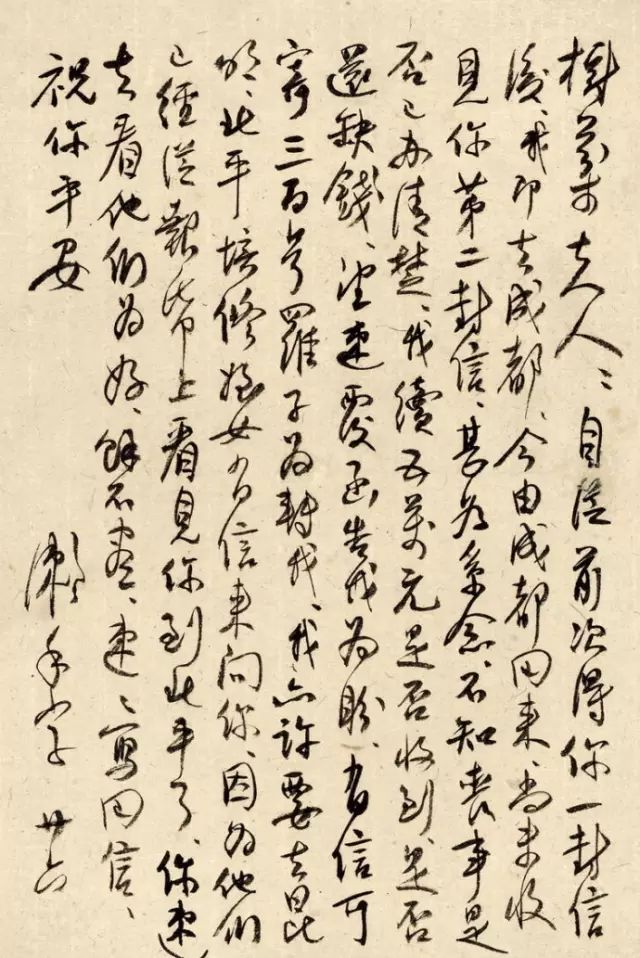 樹蕚夫人：自從前次得你一封信
後、我即去成都、今由成都回來、尚未收
見你第二封信、甚為系念、不知喪事是
否已办清楚、我續五萬元是否收到、是否
還缺錢、望速覆函告我為盼、有信可
寄三百号羅子为轉我、我亦許要去昆
明、北平培修姪女有信來问你、因为他们
已經從報帋上看見你到北平了、你速
去看他们为好、餘不盡、速速寫回信、
祝你平安
漱 手字 廿六